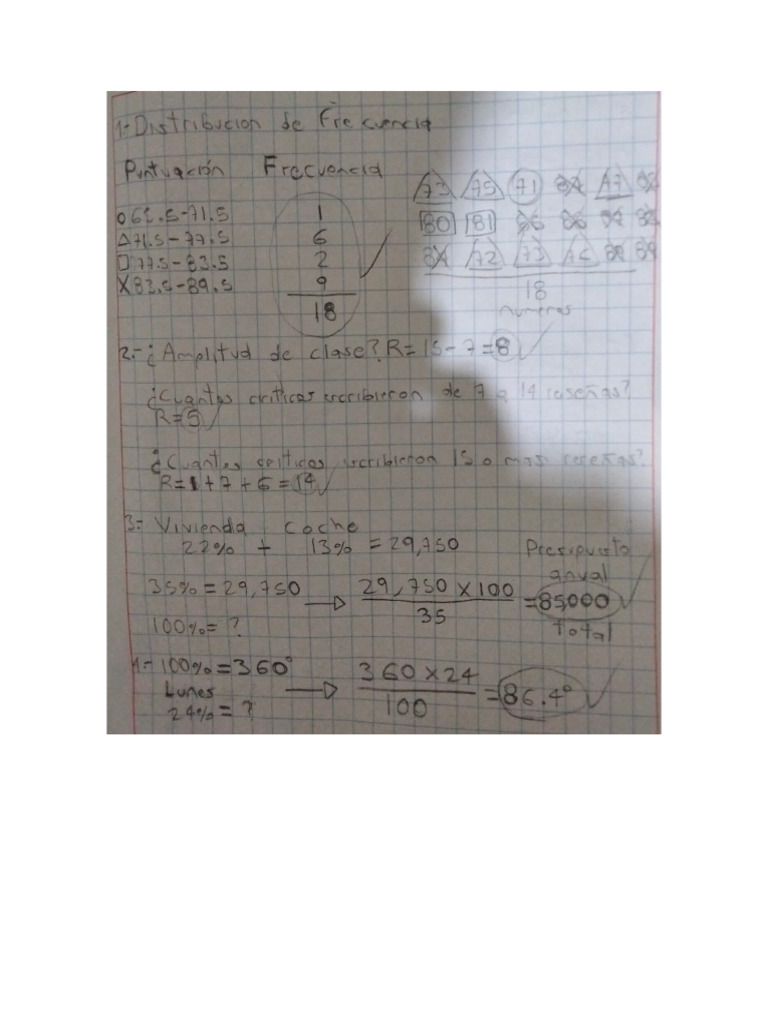 1.- Distribucion de Frecuencia
Puntuación Frecuencia
73 75 71 77
61.5-71.5 1
80 81 86
71.5-77.5 6
72 73 76
77.5-83.5 2
18
83.5-89.5 9
numeros
18
2.- ¿Amplitud de clase? R= 15-7=8
¿Cuantos criticos escribieron de 7 a 14 reseñas?
R=5
¿Cuantos criticos escribieron 15 o mas reseñas?
R=1+7+6=14
3.- Vivienda Coche
22% + 13% = 29,750
Presupuesto
anual
35% = 29,750 → 29,750 x 100 / 35 = 85,000
100% = ?
total
4.- 100% = 360°
Lunes → 360 x 24 / 100 = 86.4°
24% = ?